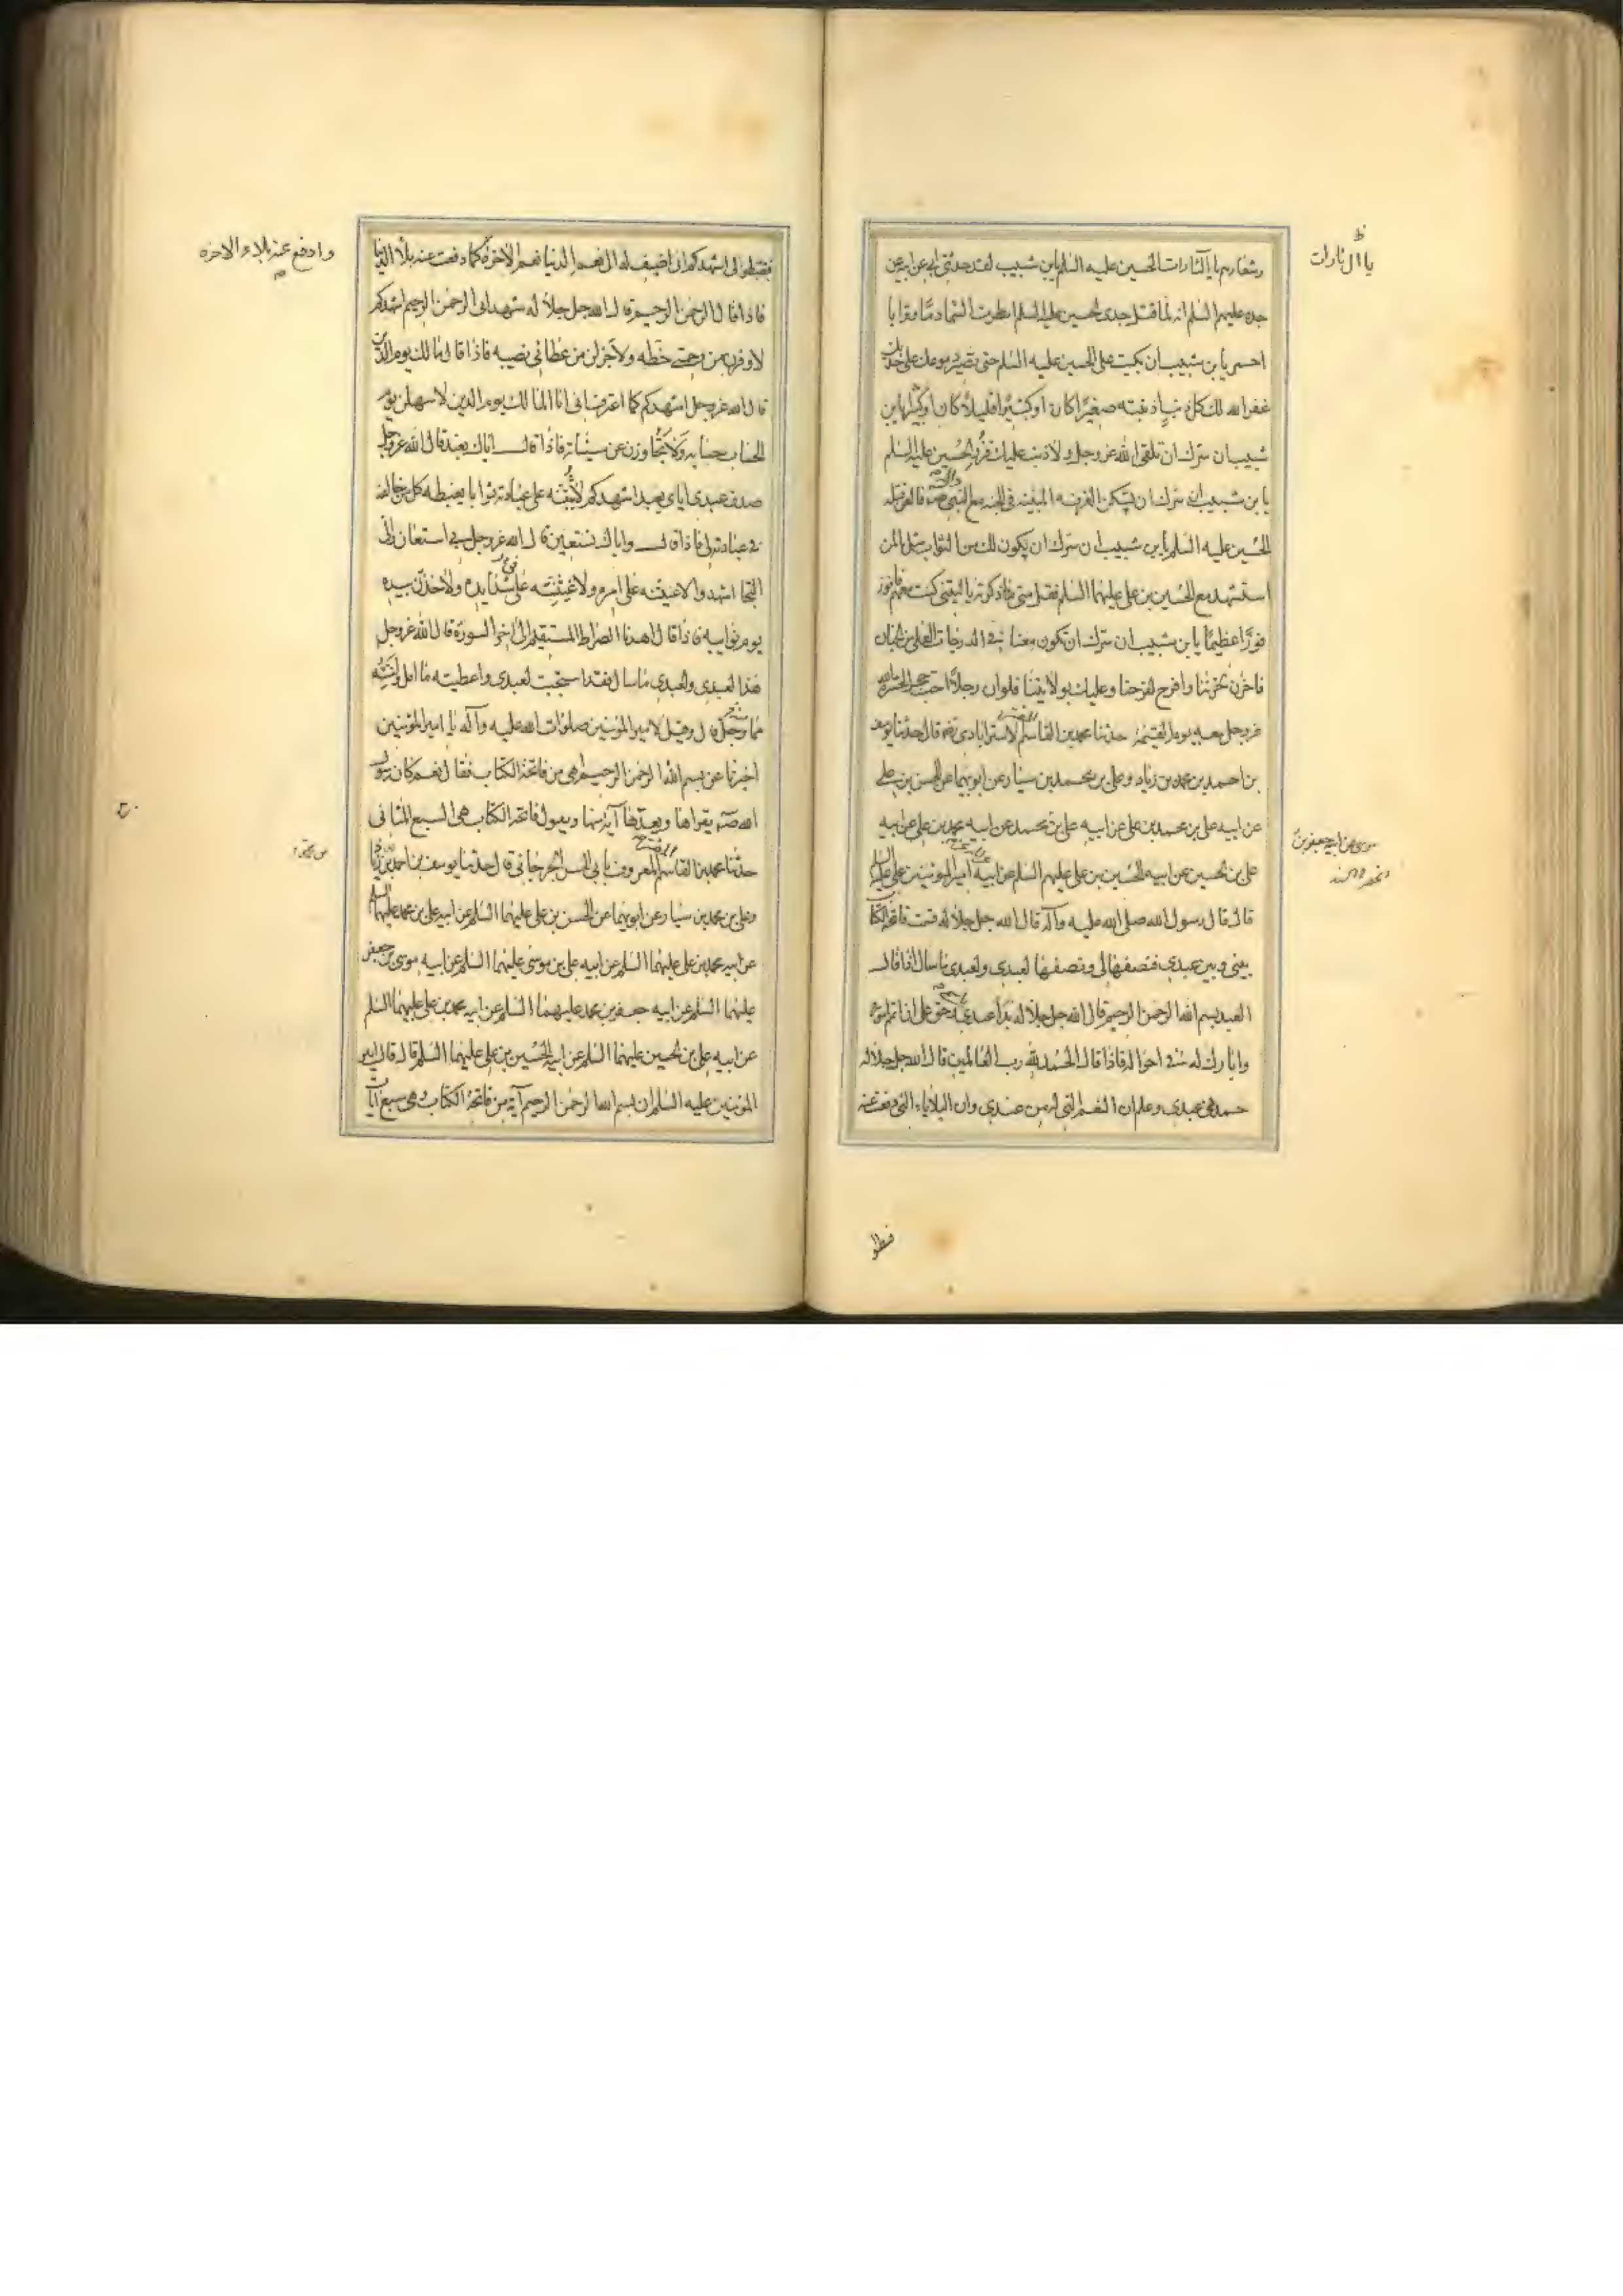 وشعارهم يا آل ثارات الحسين عليه السلم يابن شبيب لقد حدثني ابي عن ابيه عن
جده عليهم السلم انه لما قتل جدى الحسين عليه السلم امطرت السماء دما وترابا
احمر يا بن شبيب ان بكيت على الحسين عليه السلم حتى تصير دموعك على خديك
غفر الله لك كل ذنب اذنبته صغيرا كان او كبيرا قليلا كان او كثيرا يابن
شبيب ان سرك ان تلقى الله عز وجل ولا ذنب عليك فزر الحسين عليه السلم
يا بن شبيب ان سرك ان تسكن الغرف المبنية فى الجنة مع النبى صه فالعن قتلة
الحسين عليه السلم يابن شبيب ان سرك ان يكون لك من الثواب مثل ما لمن
استشهد مع الحسين بن على عليهما السلم فقل متى ما ذكرته يا ليتنى كنت معهم فافوز
فوزا عظيما يا بن شبيب ان سرك ان تكون معنا فى الدرجات العلى من الجنان
فاحزن لحزننا وافرح لفرحنا وعليك بولايتنا فلو ان رجلا احب حجرا لحشره الله
عز وجل معه يوم القيمة حدثنا محمد بن القاسم الاسترابادى رضه قال حدثنا يوسف
بن احمد بن محمد بن زياد وعلى بن محمد بن سيار عن ابويهما عن الحسن بن على
عن ابيه على بن محمد بن على عن ابيه على بن محمد عن ابيه محمد بن على عن ابيه
على بن الحسين عن ابيه الحسين بن على عليهم السلم عن ابيه امير المؤمنين على عليه السلم
قال قال رسول الله صلى الله عليه وآله قال الله جل جلاله قسمت فاتحة الكتاب
بينى وبين عبدى فنصفها لى ونصفها لعبدى ولعبدى ما سال اذا قال
العبد بسم الله الرحمن الرحيم قال الله جل جلاله بدا عبدى حق على ان اتمم اموره
وابارك له فى احواله فاذا قال الحمد لله رب العالمين قال الله جل جلاله
حمدنى عبدى وعلم ان النعم التى له من عندى وان البلايا التى دفعت عنه
يا آل ثارات
فبطولى اشهدكم ان اضيف له الى نعم الدنيا نعم الاخرة كما دفعت عنه بلاء الدنيا
فاذا قال الرحمن الرحيم قال الله جل جلاله شهد لى الرحمن الرحيم اشهدكم
لاوفرن من رحمتى حظه ولاجزلن من عطائى نصيبه فاذا قال مالك يوم الدين
قال الله عز وجل اشهدكم كما اعترف انى انا المالك يوم الدين لاسهلن يوم
الحساب حسابه ولاتجاوزن عن سيئاته فاذا قال اياك نعبد قال الله عز وجل
صدق عبدى اياى يعبد اشهدكم لاثيبنه على عبادته ثوابا يغبطه كل من خالفه
فى عبادته لى فاذا قال واياك نستعين قال الله عز وجل بى استعان والى
التجا اشهدوا لاعيننه على امره ولاغيثنه على شدايده ولاخذن بيده
يوم نوايبه فاذا قال اهدنا الصراط المستقيم الى اخر السورة قال الله عز وجل
هذا لعبدى ولعبدى ما سال فقد استجبت لعبدى واعطيته ما امل وامنته
مما وجل قال وقيل لامير المؤمنين صلوات الله عليه وآله يا امير المؤمنين
اخبرنا عن بسم الله الرحمن الرحيم اهى من فاتحة الكتاب فقال نعم كان رسول
الله صه يقراها ويعدها آية منها ويقول فاتحة الكتاب هى السبع المثانى
حدثنا محمد بن القاسم المفسر المعروف بابى الحسن الجرجانى قال حدثنا يوسف بن احمد بن زياد
وعلى بن محمد بن سيار عن ابويهما عن الحسن بن على عليهما السلم عن ابيه على بن محمد عليهما السلم
عن ابيه محمد بن على عليهما السلم عن ابيه على بن موسى عليهما السلم عن ابيه موسى بن جعفر
عليهما السلم عن ابيه جعفر بن محمد عليهما السلم عن ابيه محمد بن على عليهما السلم
عن ابيه على بن الحسين عليهما السلم عن ابيه الحسين بن على عليهما السلم قال قال امير
المؤمنين عليه السلم ان بسم الله الرحمن الرحيم آية من فاتحة الكتاب وهى سبع آيات
وادفع عنه بلاء الاخرة